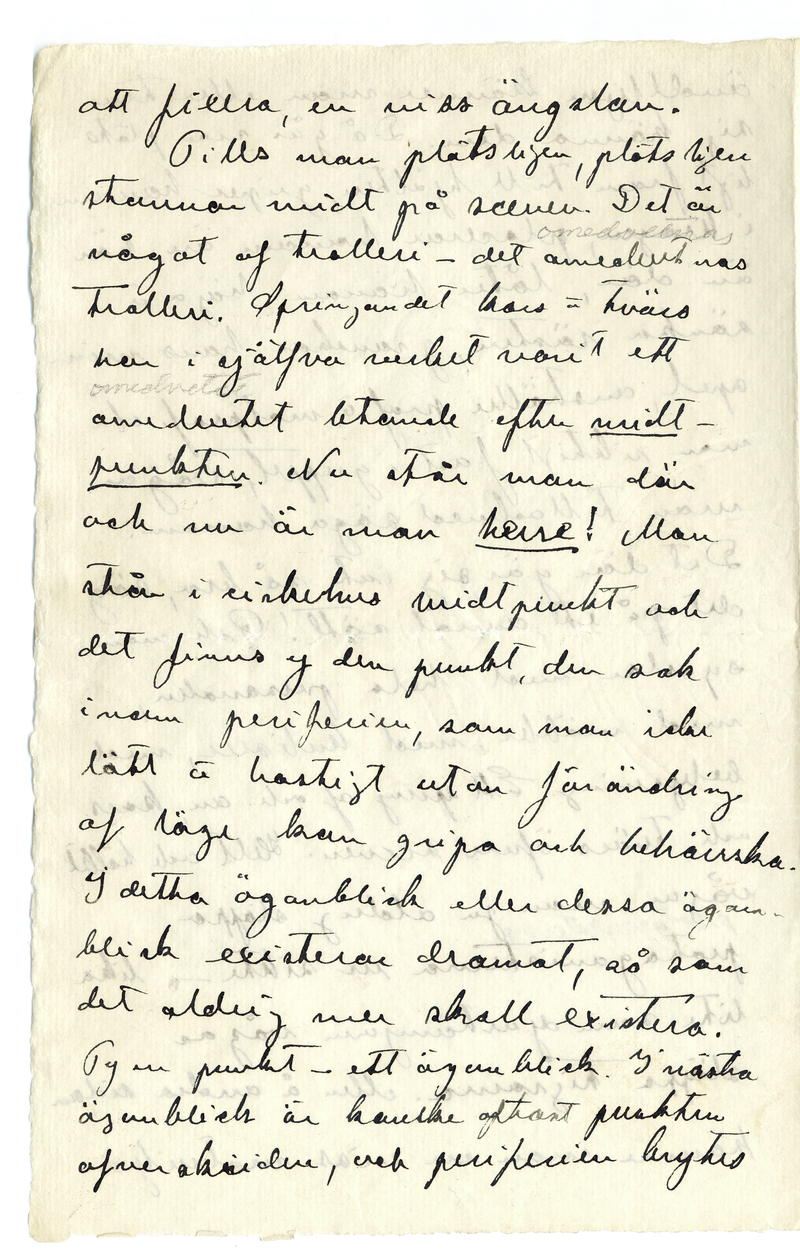 att fixera, en viss ängslan.
Tills man plötsligen, plötsligen
stannar midt på scenen. Det är
omedvetnas
något af trolleri – det omedvetnas
trolleri. Springandet kors o tvärs
har i själfva verket varit ett
omedvetet
omedvetet letande efter midt-
punkten. Nu står man där
och nu är man herre! Man
står i cirkelns midtpunkt och
det finns ej den punkt, den sak
inom periferien, som man icke
lätt o hastigt utan förändring
af läge kan gripa och behärska.
I detta ögonblick eller dessa ögon-
blick existerar dramat, så som
det aldrig mer skall existera.
Ty en punkt – ett ögonblick. I nästa
ögonblick är kanske oftast punkten
öfverskriden, och periferien brytes